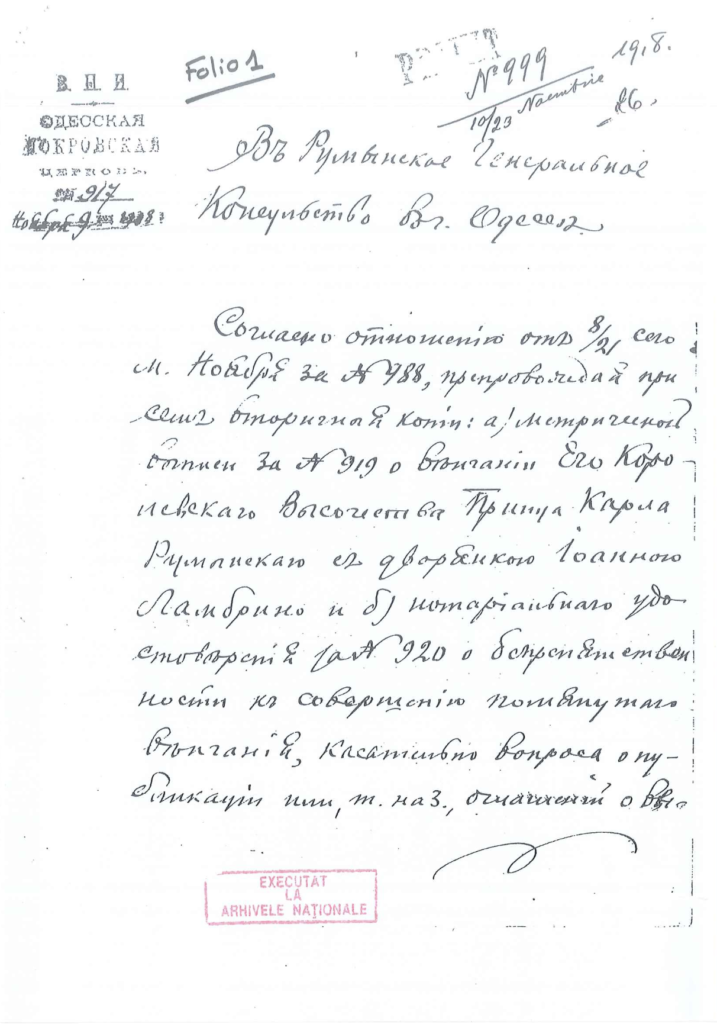 Folio 1
№ 999
1918.
10/23 Noembrie
В. П. И.
ОДЕССКАЯ
ПОКРОВСКАЯ
ЦЕРКОВЬ.
917
Ноября 9 1918 г.
Въ Румынское Генеральное
Консульство въ г. Одессѣ.
Согласно отношенію отъ 8/21 сего
м. Ноября за № 988, препровождая при
семъ вторичныя копіи: а) метрической
выписи за № 919 о вѣнчаніи Его Коро-
левскаго Высочества Принца Карла
Румынскаго съ дворянкою Іоанною
Ламбрино и б) нотаріальнаго удо-
стовѣренія за № 920 о безпрепятствен-
ности къ совершенію помянутаго
вѣнчанія, касательно вопроса о пу-
бликаціи или, т. наз., оглашеній о
EXECUTAT
LA
ARHIVELE NAȚIONALE